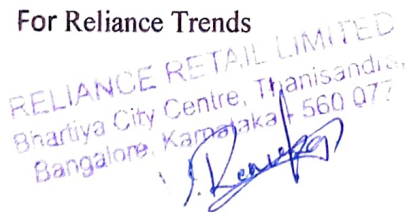 For Reliance Trends
RELIANCE RETAIL LIMITED
Bhartiya City Centre, Thanisandra,
Bangalore, Karnataka - 560 077